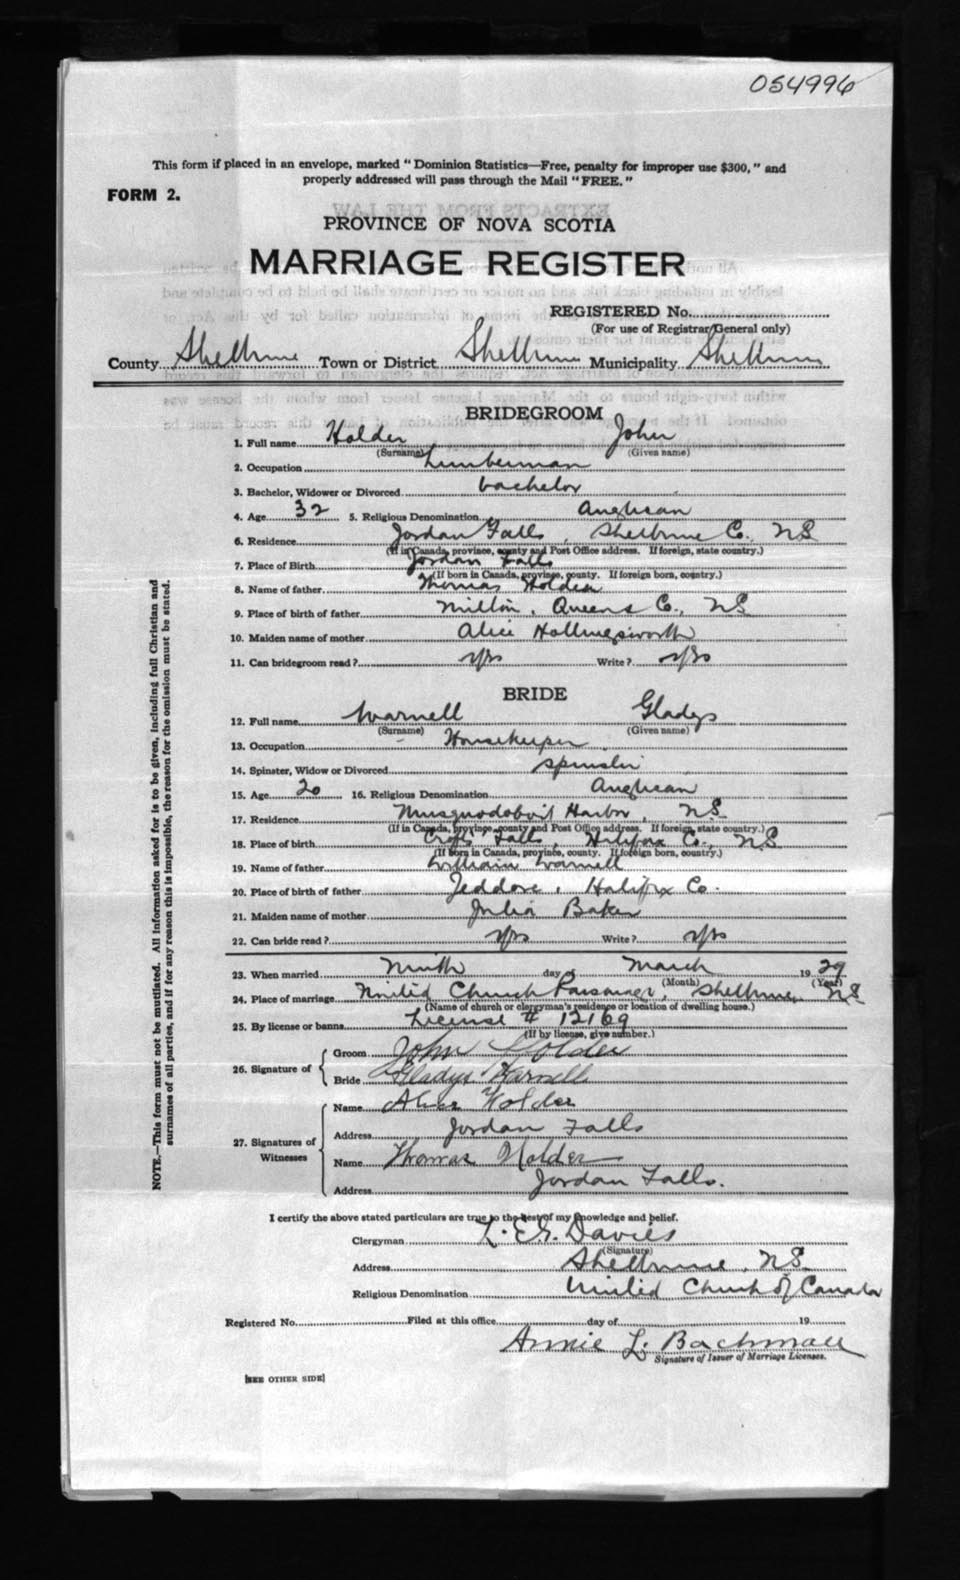 054996
This form if placed in an envelope, marked "Dominion Statistics—Free, penalty for improper use $300," and
properly addressed will pass through the Mail "FREE."
FORM 2.
PROVINCE OF NOVA SCOTIA
MARRIAGE REGISTER
REGISTERED No.
(For use of Registrar General only)
County Shelburne Town or District Shelburne Municipality Shelburne
BRIDEGROOM
1. Full name Holder John
(Surname) (Given name)
2. Occupation Lumberman
3. Bachelor, Widower or Divorced bachelor
4. Age 32 5. Religious Denomination Anglican
6. Residence Jordan Falls, Shelburne Co., NS
(If in Canada, province, county and Post Office address. If foreign, state country.)
7. Place of Birth Jordan Falls
(If born in Canada, province, county. If foreign born, country.)
8. Name of father Thomas Holder
9. Place of birth of father Milton, Queens Co., NS
10. Maiden name of mother Alice Hollingsworth
11. Can bridegroom read? yes Write? yes
BRIDE
12. Full name Warnell Gladys
(Surname) (Given name)
13. Occupation Housekeeper
14. Spinster, Widow or Divorced spinster
15. Age 20 16. Religious Denomination Anglican
17. Residence Musquodoboit Harbor, NS
(If in Canada, province, county and Post Office address. If foreign, state country.)
18. Place of birth Falls, Halifax Co., NS
(If born in Canada, province, county. If foreign born, country.)
19. Name of father William Warnell
20. Place of birth of father Jeddore, Halifax Co.
21. Maiden name of mother Julia Baker
22. Can bride read? yes Write? yes
23. When married Ninth day of March 1929
(Month) (Year)
24. Place of marriage United Church Parsonage, Shelburne, NS
(Name of church or clergyman's residence or location of dwelling house.)
25. By license or banns License # 12169
(If by license, give number.)
26. Signature of
Groom John Holder
Bride Gladys Warnell
27. Signatures of Witnesses
Name Alice Holder
Address Jordan Falls
Name Thomas Holder
Address Jordan Falls.
I certify the above stated particulars are true to the best of my knowledge and belief.
Clergyman Davies
(Signature)
Address Shelburne, NS
Religious Denomination United Church of Canada
Registered No. Filed at this office day of 19
Annie L. Bachman
Signature of Issuer of Marriage Licenses.
[SEE OTHER SIDE]
NOTE.—This form must not be mutilated. All information asked for is to be given, including full Christian and
surnames of all parties, and if for any reason this is impossible, the reason for the omission must be stated.